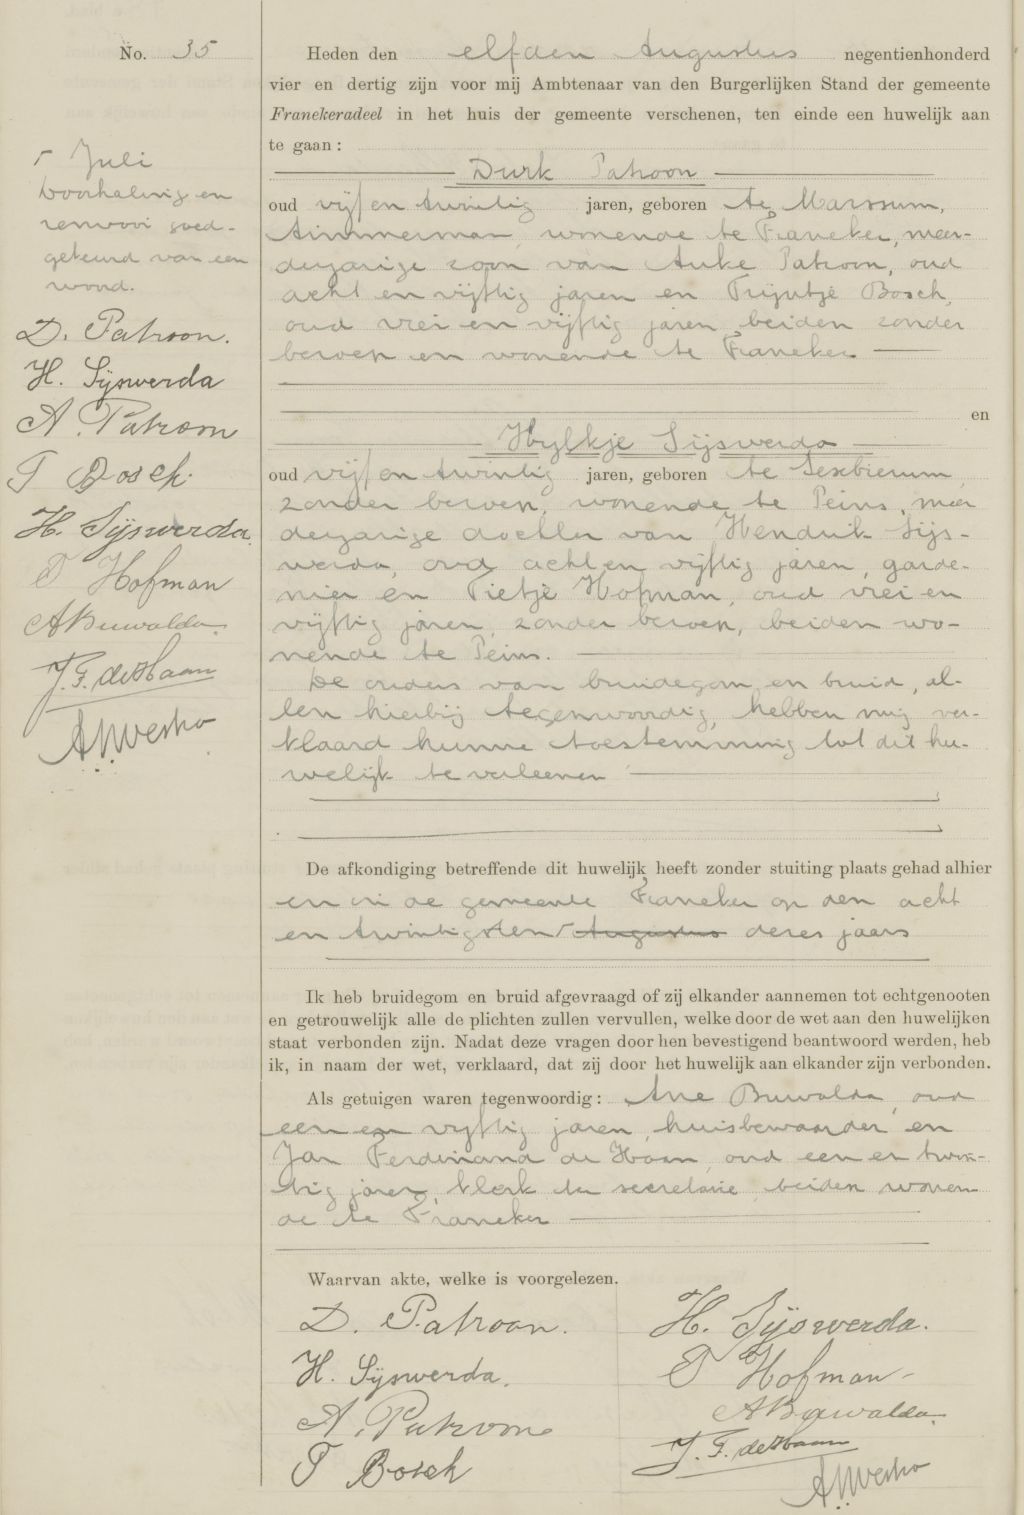 No. 35
Heden den elfden Augustus negentienhonderd
vier en dertig zijn voor mij Ambtenaar van den Burgerlijken Stand der gemeente
Franekeradeel in het huis der gemeente verschenen, ten einde een huwelijk aan
te gaan:
Durk Patroon
oud vijf en twintig jaren, geboren te Marssum,
timmerman, wonende te Franeker, meer-
derjarige zoon van Anke Patroon, oud
acht en vijftig jaren en Trijntje Bosch,
oud vier en vijftig jaren, beiden zonder
beroep en wonende te Franeker
en
Hylkje Sijswerda
oud vijf en twintig jaren, geboren te Sexbierum,
zonder beroep, wonende te Peins, meer
derjarige dochter van Hendrik Sijs-
werda, oud acht en vijftig jaren, garde-
nier en Tietje Hofman, oud vier en
vijftig jaren, zonder beroep, beiden wo-
nende te Peins.
De ouders van bruidegom en bruid, al-
len hierbij tegenwoordig, hebben mij ver-
klaard hunne toestemming tot dit hu-
welijk te verleenen
De afkondiging betreffende dit huwelijk heeft zonder stuiting plaats gehad alhier
en in de gemeente Franeker op den acht
en twintigsten ⌈ Augustus dezes jaars
Ik heb bruidegom en bruid afgevraagd of zij elkander aannemen tot echtgenooten
en getrouwelijk alle de plichten zullen vervullen, welke door de wet aan den huwelijken
staat verbonden zijn. Nadat deze vragen door hen bevestigend beantwoord werden, heb
ik, in naam der wet, verklaard, dat zij door het huwelijk aan elkander zijn verbonden.
Als getuigen waren tegenwoordig: Ane Buwalda, oud
een en vijftig jaren, huisbewaarder en
Jan Ferdinand de Haan, oud een en twin-
tig jaren, klerk ter secretarie, beiden wonen
de te Franeker
Waarvan akte, welke is voorgelezen.
D. Patroon.
H. Sijswerda.
A. Patroon
T Bosch
H. Sijswerda.
T Hofman
A Buwalda.
J. F. de Haan
⌈ Juli
Doorhaling en
renvooi goed-
gekeurd van een
woord.
D. Patroon.
H. Sijswerda
A. Patroon
T Bosch.
H. Sijswerda.
T Hofman
A Buwalda.
J. F. de Haan